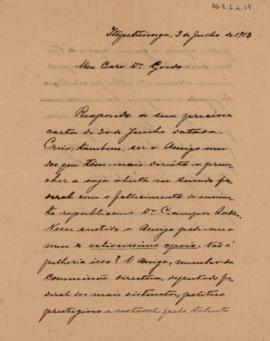 Itapetininga, 3 de Julho de 1913
Meu Caro Dr. Gordo
Respondo a sua preciosa
carta de 30 de Junho datada.
Creio, tambem, ser o Amigo um
dos que têm mais direito a preen-
cher a vaga aberta no Senado fe-
deral com o fallecimento do
republicano Dr. Campos Salles.
Nesse sentido o Amigo pede o
meu valiosissimo apoio. Não é
pilheria isso? O Amigo, membro da
commissão directora, deputado fe-
deral dos mais distinctos, politico
prestigioso e pelo talento